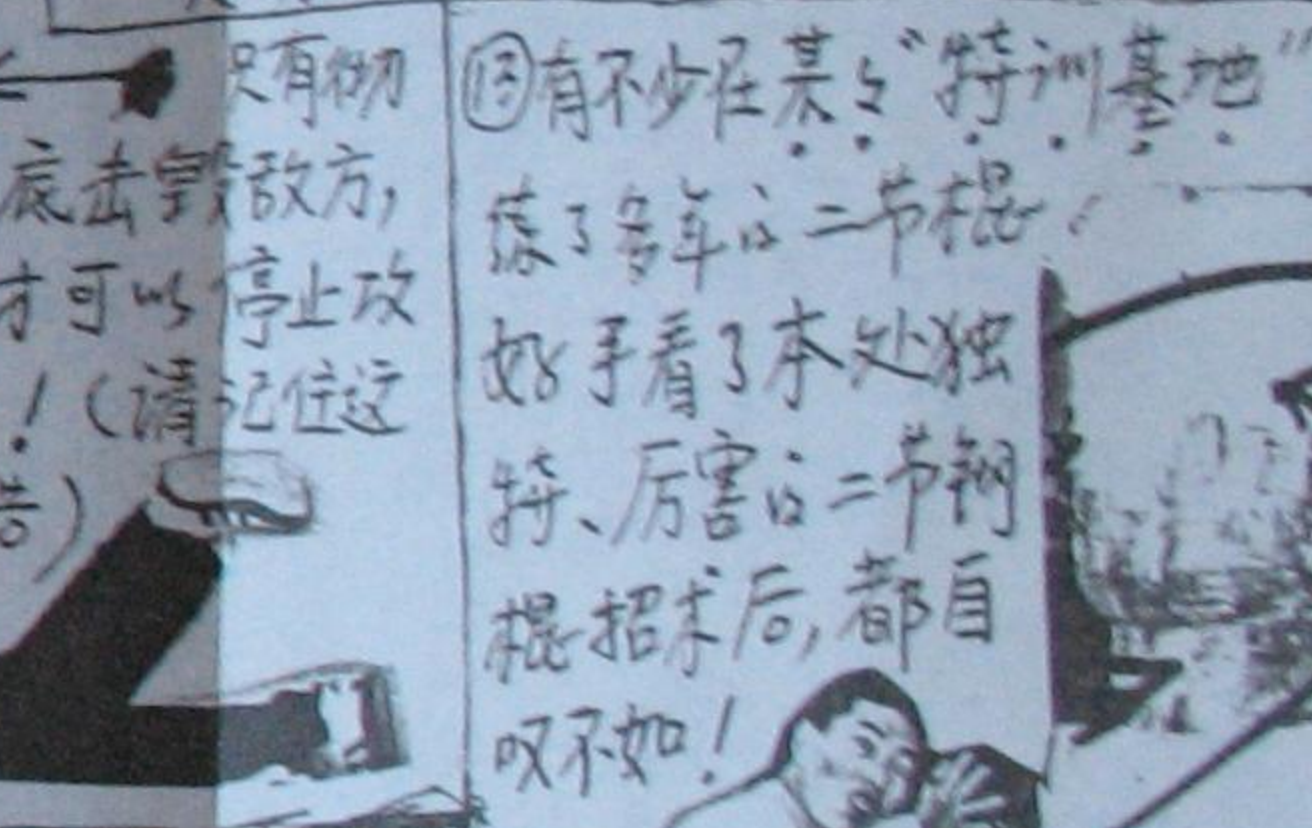 只有彻
底击毁敌方,
才可以停止攻
!(请记住这
告)
有不少在某々“特训基地”
练了多年的二节棍
好手看了本处独
特、厉害的二节钢
棍招术后,都自
叹不如!